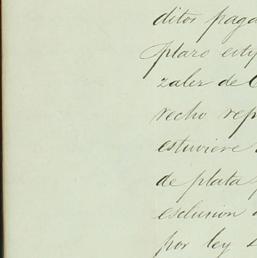 ditos paga
plazo esty
zalez de C
recho rep
estuviere
de plata p
esclusion d
por ley